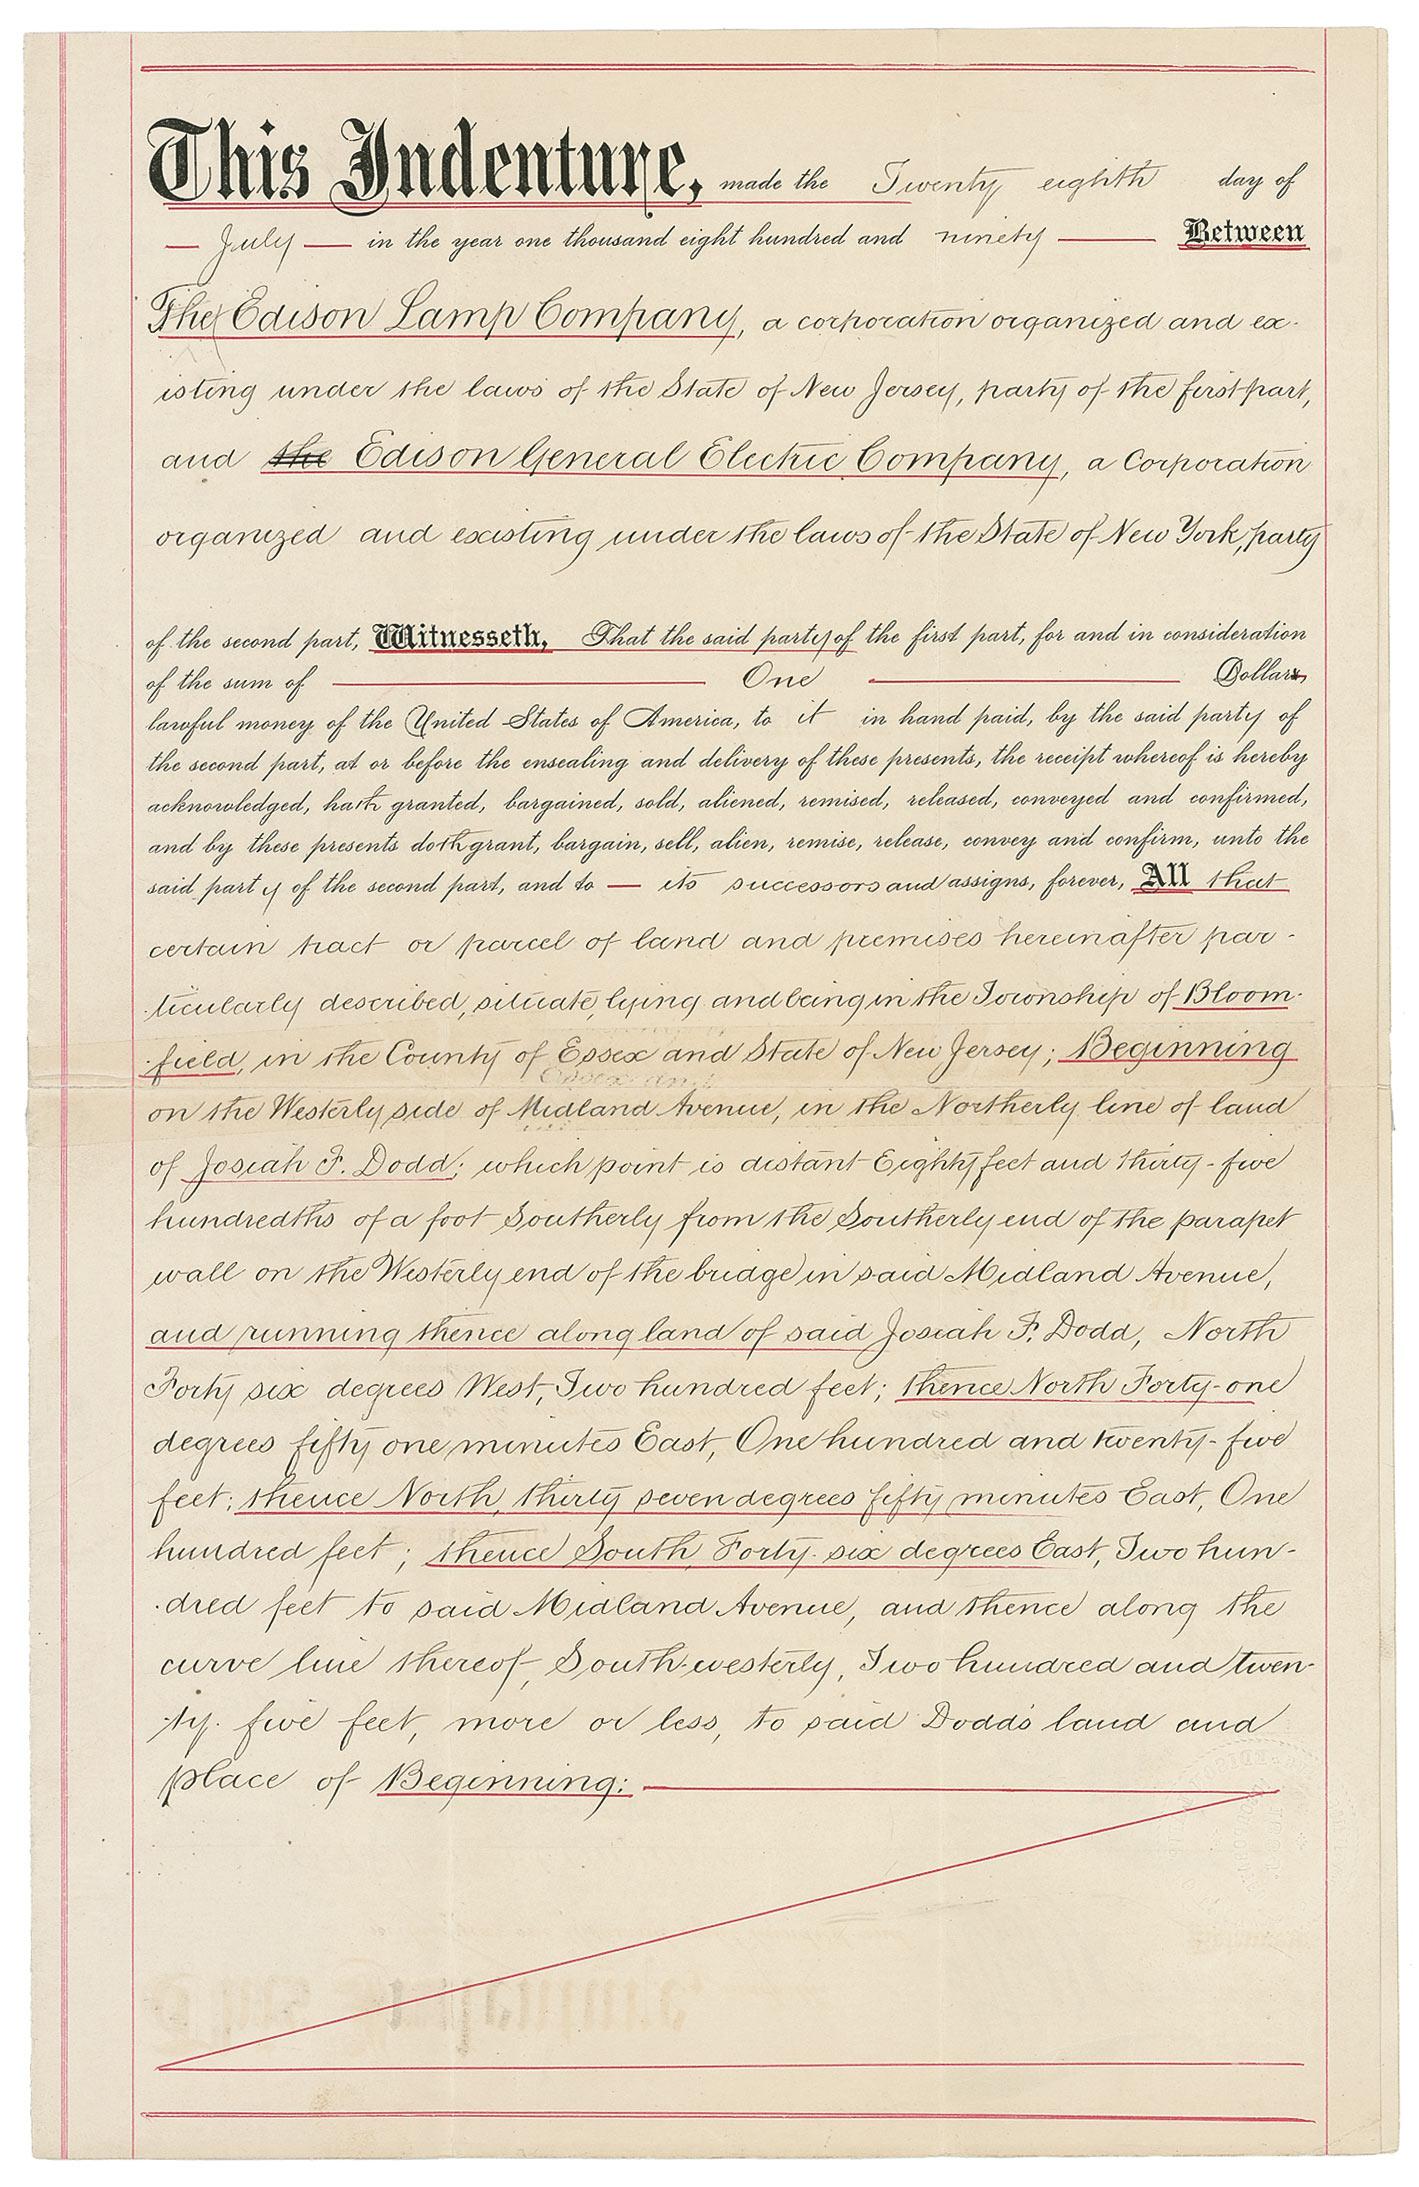 This Indenture, made the Twenty eighth day of
July in the year one thousand eight hundred and ninety Between
The Edison Lamp Company, a corporation organized and ex-
isting under the laws of the State of New Jersey, party of the first part,
and the Edison General Electric Company, a Corporation
organized and existing under the laws of the State of New York, party
of the second part, Witnesseth, That the said party of the first part, for and in consideration
of the sum of One Dollar,
lawful money of the United States of America, to it in hand paid, by the said party of
the second part, at or before the ensealing and delivery of these presents, the receipt whereof is hereby
acknowledged, hath granted, bargained, sold, aliened, remised, released, conveyed and confirmed,
and by these presents doth grant, bargain, sell, alien, remise, release, convey and confirm, unto the
said party of the second part, and to its successors and assigns, forever, All that
certain tract or parcel of land and premises hereinafter par-
ticularly described, situate, lying and being in the Township of Bloom-
field, in the County of Essex and State of New Jersey; Beginning
on the Westerly side of Midland Avenue, in the Northerly line of land
of Josiah F. Dodd; which point is distant Eighty feet and thirty-five
hundredths of a foot Southerly from the Southerly end of the parapet
wall on the Westerly end of the bridge in said Midland Avenue,
and running thence along land of said Josiah F. Dodd, North
Forty six degrees West, Two hundred feet; thence North Forty-one
degrees fifty one minutes East, One hundred and twenty-five
feet; thence North, thirty seven degrees fifty minutes East, One
hundred feet; thence South Forty-six degrees East, Two hun-
dred feet to said Midland Avenue, and thence along the
curve line thereof, South-westerly, Two hundred and twen-
ty-five feet, more or less, to said Dodd's land and
place of Beginning: